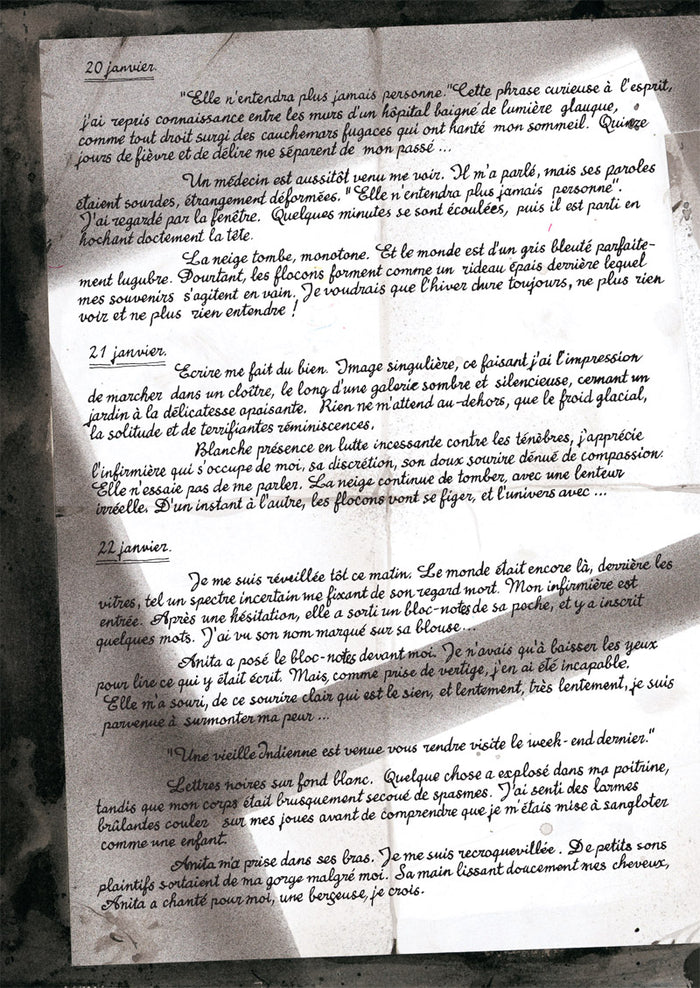 20 janvier.
"Elle n'entendra plus jamais personne." Cette phrase curieuse à l'esprit,
j'ai repris connaissance entre les murs d'un hôpital baigné de lumière glauque,
comme tout droit surgi des cauchemars fugaces qui ont hanté mon sommeil. Quinze
jours de fièvre et de délire me séparent de mon passé ...
Un médecin est aussitôt venu me voir. Il m'a parlé, mais ses paroles
étaient sourdes, étrangement déformées. "Elle n'entendra plus jamais personne".
J'ai regardé par la fenêtre. Quelques minutes se sont écoulées, puis il est parti en
hochant doctement la tête.
La neige tombe, monotone. Et le monde est d'un gris bleuté parfaite-
ment lugubre. Pourtant, les flocons forment comme un rideau épais derrière lequel
mes souvenirs s'agitent en vain. Je voudrais que l'hiver dure toujours, ne plus rien
voir et ne plus rien entendre !
21 janvier.
Ecrire me fait du bien. Image singulière, ce faisant j'ai l'impression
de marcher dans un cloître, le long d'une galerie sombre et silencieuse, cernant un
jardin à la délicatesse apaisante. Rien ne m'attend au-dehors, que le froid glacial,
la solitude et de terrifiantes réminiscences.
Blanche présence en lutte incessante contre les ténèbres, j'apprécie
l'infirmière qui s'occupe de moi, sa discrétion, son doux sourire dénué de compassion.
Elle n'essaie pas de me parler. La neige continue de tomber, avec une lenteur
irréelle. D'un instant à l'autre, les flocons vont se figer, et l'univers avec ...
22 janvier.
Je me suis réveillée tôt ce matin. Le monde était encore là, derrière les
vitres, tel un spectre incertain me fixant de son regard mort. Mon infirmière est
entrée. Après une hésitation, elle a sorti un bloc-notes de sa poche, et y a inscrit
quelques mots. J'ai vu son nom marqué sur sa blouse ...
Anita a posé le bloc-notes devant moi. Je n'avais qu'à baisser les yeux
pour lire ce qui y était écrit. Mais, comme prise de vertige, j'en ai été incapable.
Elle m'a souri, de ce sourire clair qui est le sien, et lentement, très lentement, je suis
parvenue à surmonter ma peur ...
"Une vieille Indienne est venue vous rendre visite le week-end dernier."
Lettres noires sur fond blanc. Quelque chose a explosé dans ma poitrine,
tandis que mon corps était brusquement secoué de spasmes. J'ai senti des larmes
brûlantes couler sur mes joues avant de comprendre que je m'étais mise à sangloter
comme une enfant.
Anita m'a prise dans ses bras. Je me suis recroquevillée. De petits sons
plaintifs sortaient de ma gorge malgré moi. Sa main lissant doucement mes cheveux,
Anita a chanté pour moi, une berceuse, je crois.